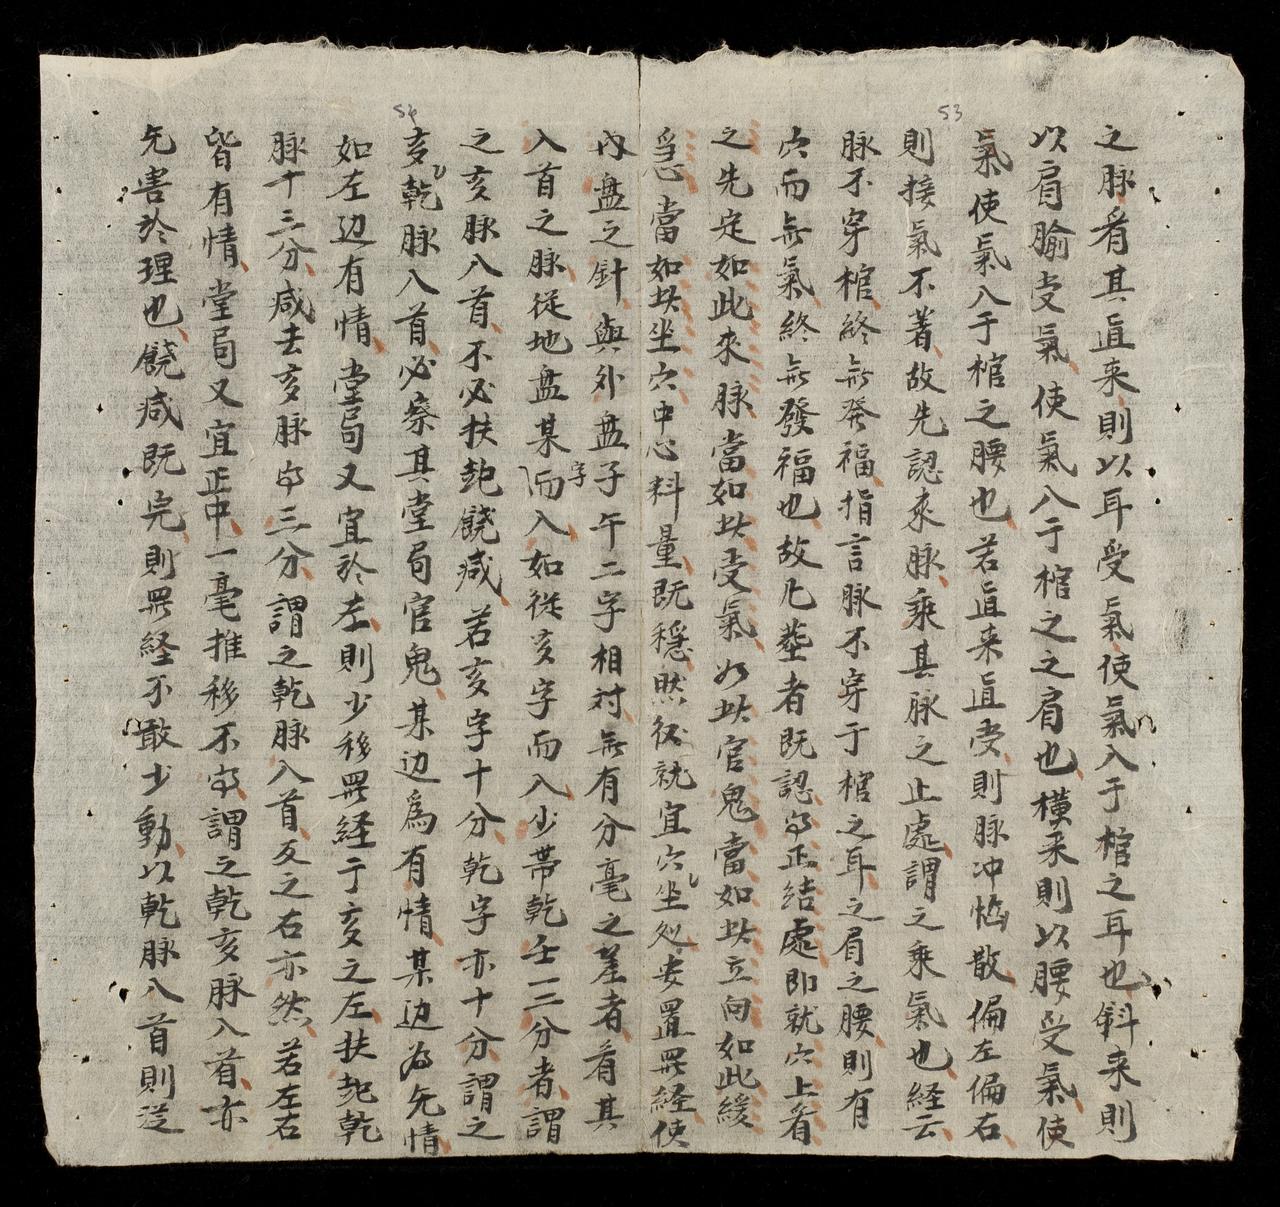 53
之脉看其直来則以耳受氣使氣入于棺之耳也斜来則
以肩腧受氣使氣入于棺之之肩也橫来則以腰受氣使
氣使氣入于棺之腰也若直来直受則脉冲惱散偏左偏右
則接氣不著故先認來脉乘其脉之止處謂之乘氣也経云
脉不穿棺終無發福指言脉不穿于棺之耳之肩之腰則有
穴而無氣終無發福也故凡葬者既認正結處即就穴上看
之先定如此來脉當如此受氣如此官鬼當如此立向如此緩
急當如此坐穴中心料量既穩然後就宜穴坐処安置羅経使
内盘之針與外盘子午二字相对無有分毫之差者看其
入首之脉從地盘某字而入如従亥字而入少帶乾壬一二分者謂
之亥脉入首不必扶起饒减若亥字十分乾字亦十分謂之
54
亥乾脉入首必察其堂局官鬼某边為有情某边為无情
如左边有情堂局又宜於左則少移羅経于亥之左扶起乾
脉十三分减去亥脉三分謂之乾脉入首反之右亦然若左右
皆有情堂局又宜正中一毫推移不謂之乾亥脉入首亦
无害於理也饒减既完則羅経不敢少動以乾脉入首則従